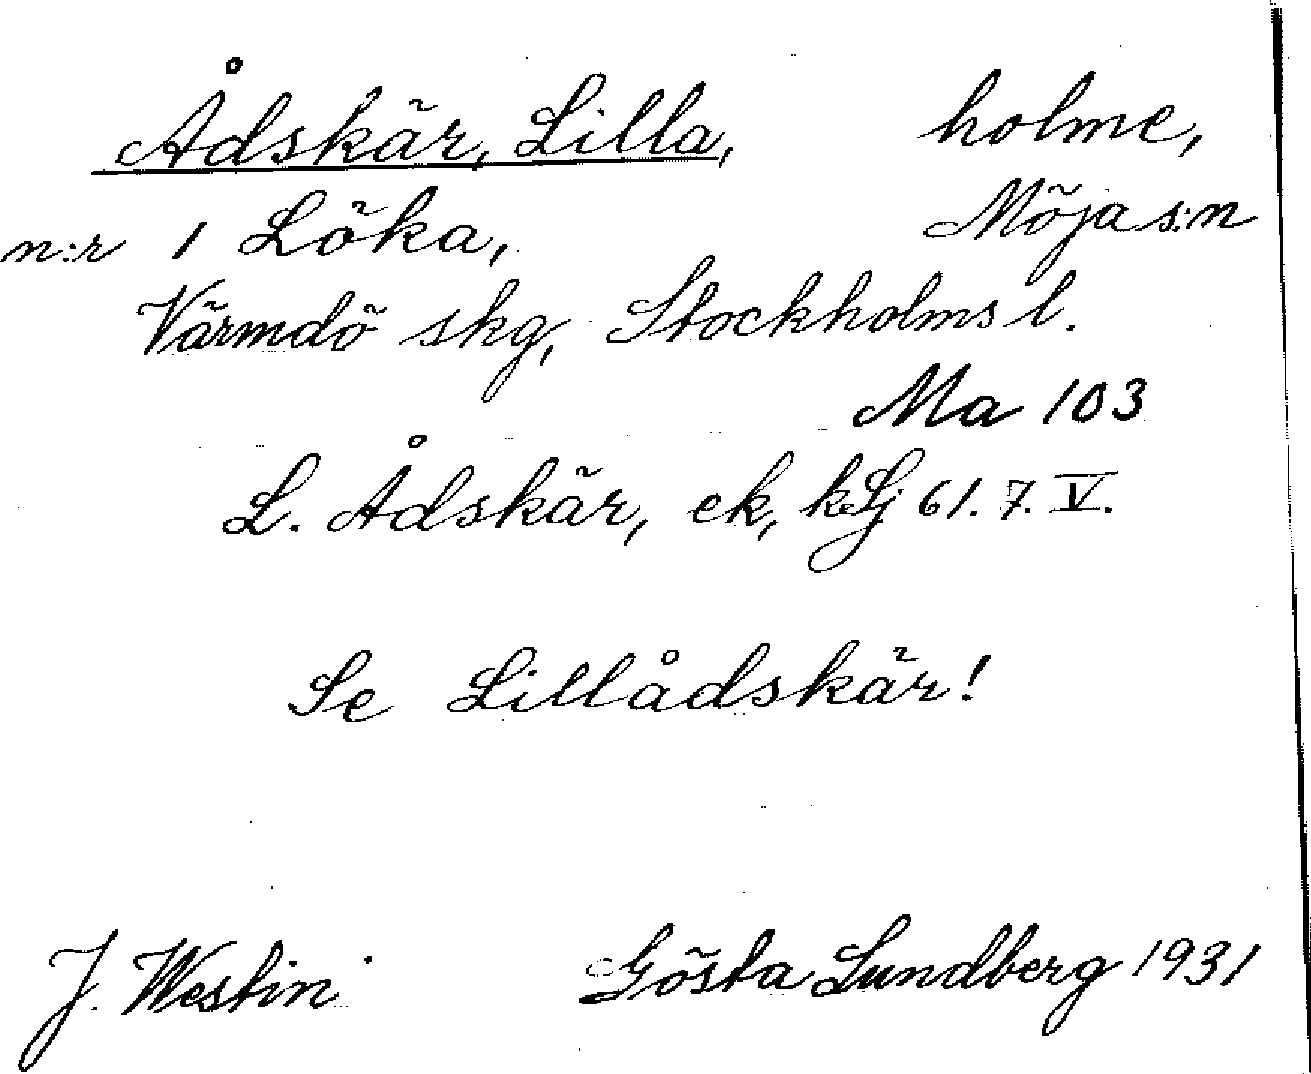 Ådskär, Lilla, holme,
n:r 1 Löka, Möja s:n
Värmdö skg, Stockholms l.
Ma 103
L. Ådskär, ek, k. Lj 61. 7. V.
Se Lillådskär!
J. Westin Gösta Lundberg 1931